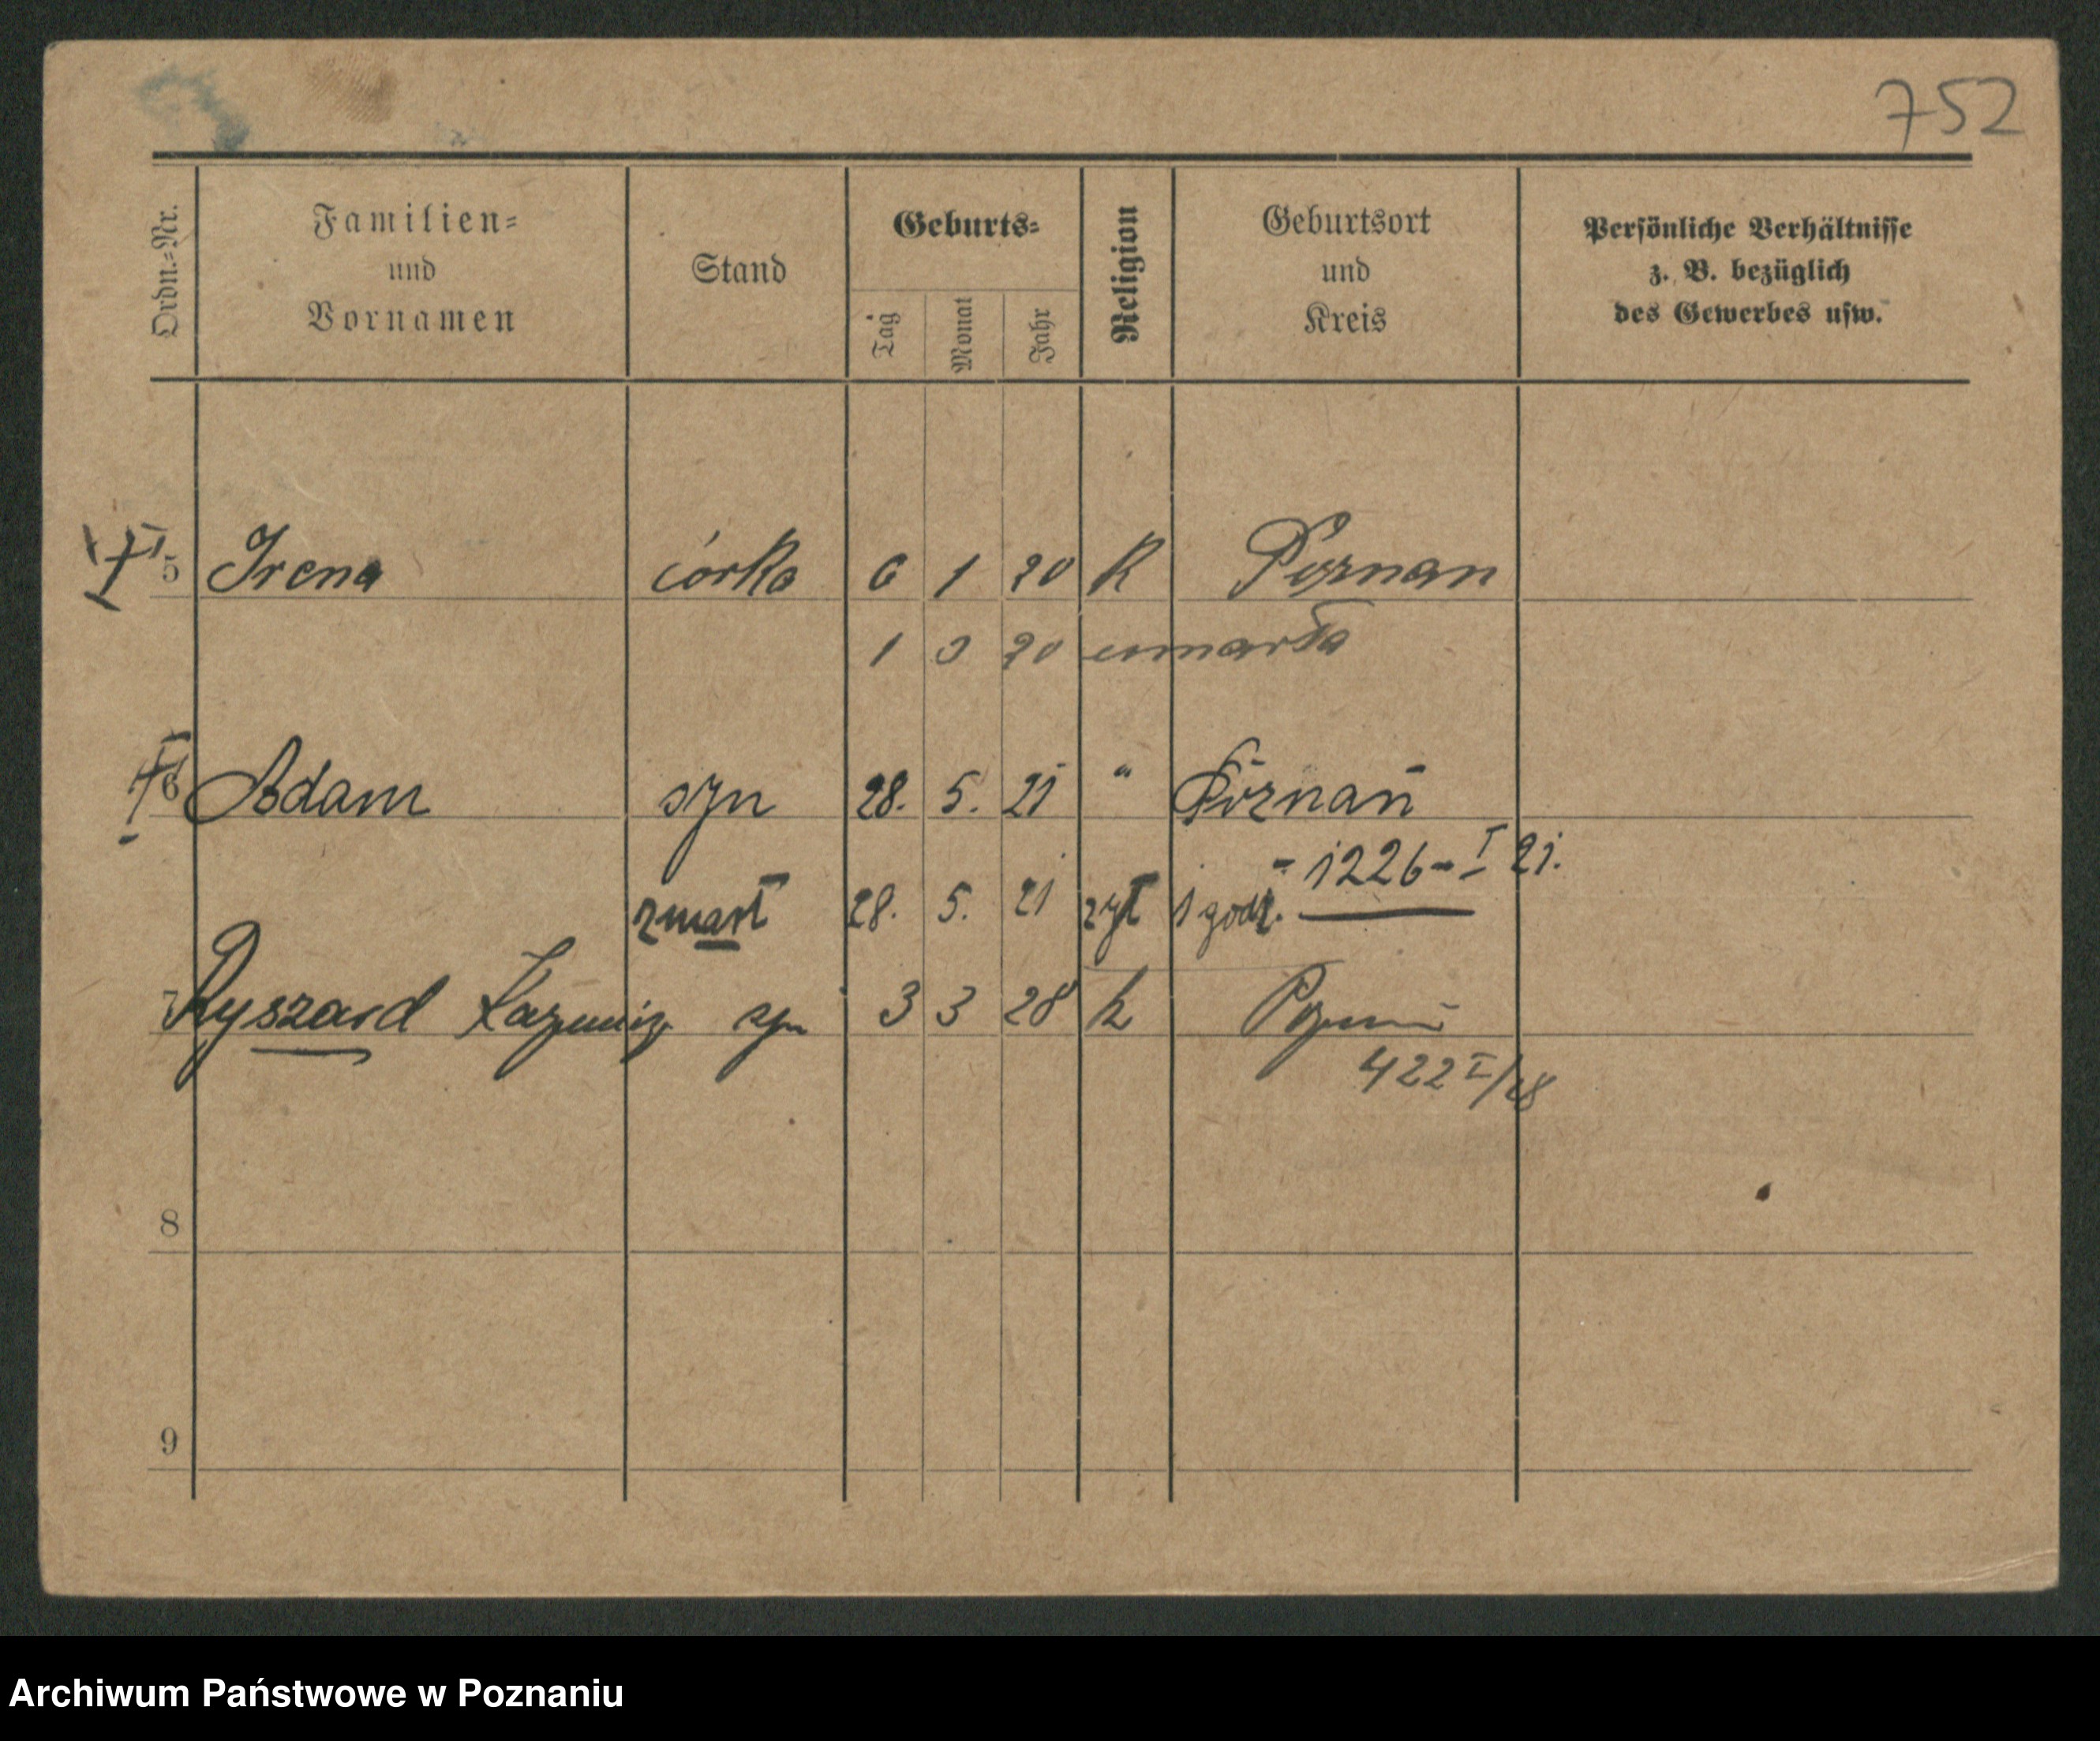 752
Ordn.=Nr.
Familien=
und
Vornamen
Stand
Geburts=
Tag
Monat
Jahr
Religion
Geburtsort
und
Kreis
Persönliche Verhältnisse
z. B. bezüglich
des Gewerbes usw.
5 Irena córka 6 1 20 K Poznan
1 3 20 umarła
6 Adam syn 28. 5. 21 " Poznań
- 1226 - I 21.
zmarł 28. 5. 21 żył 1 godz.
7 Ryszard Kazimierz syn 3 3 28 k Poznań
422 I/28
8
9
Archiwum Państwowe w Poznaniu